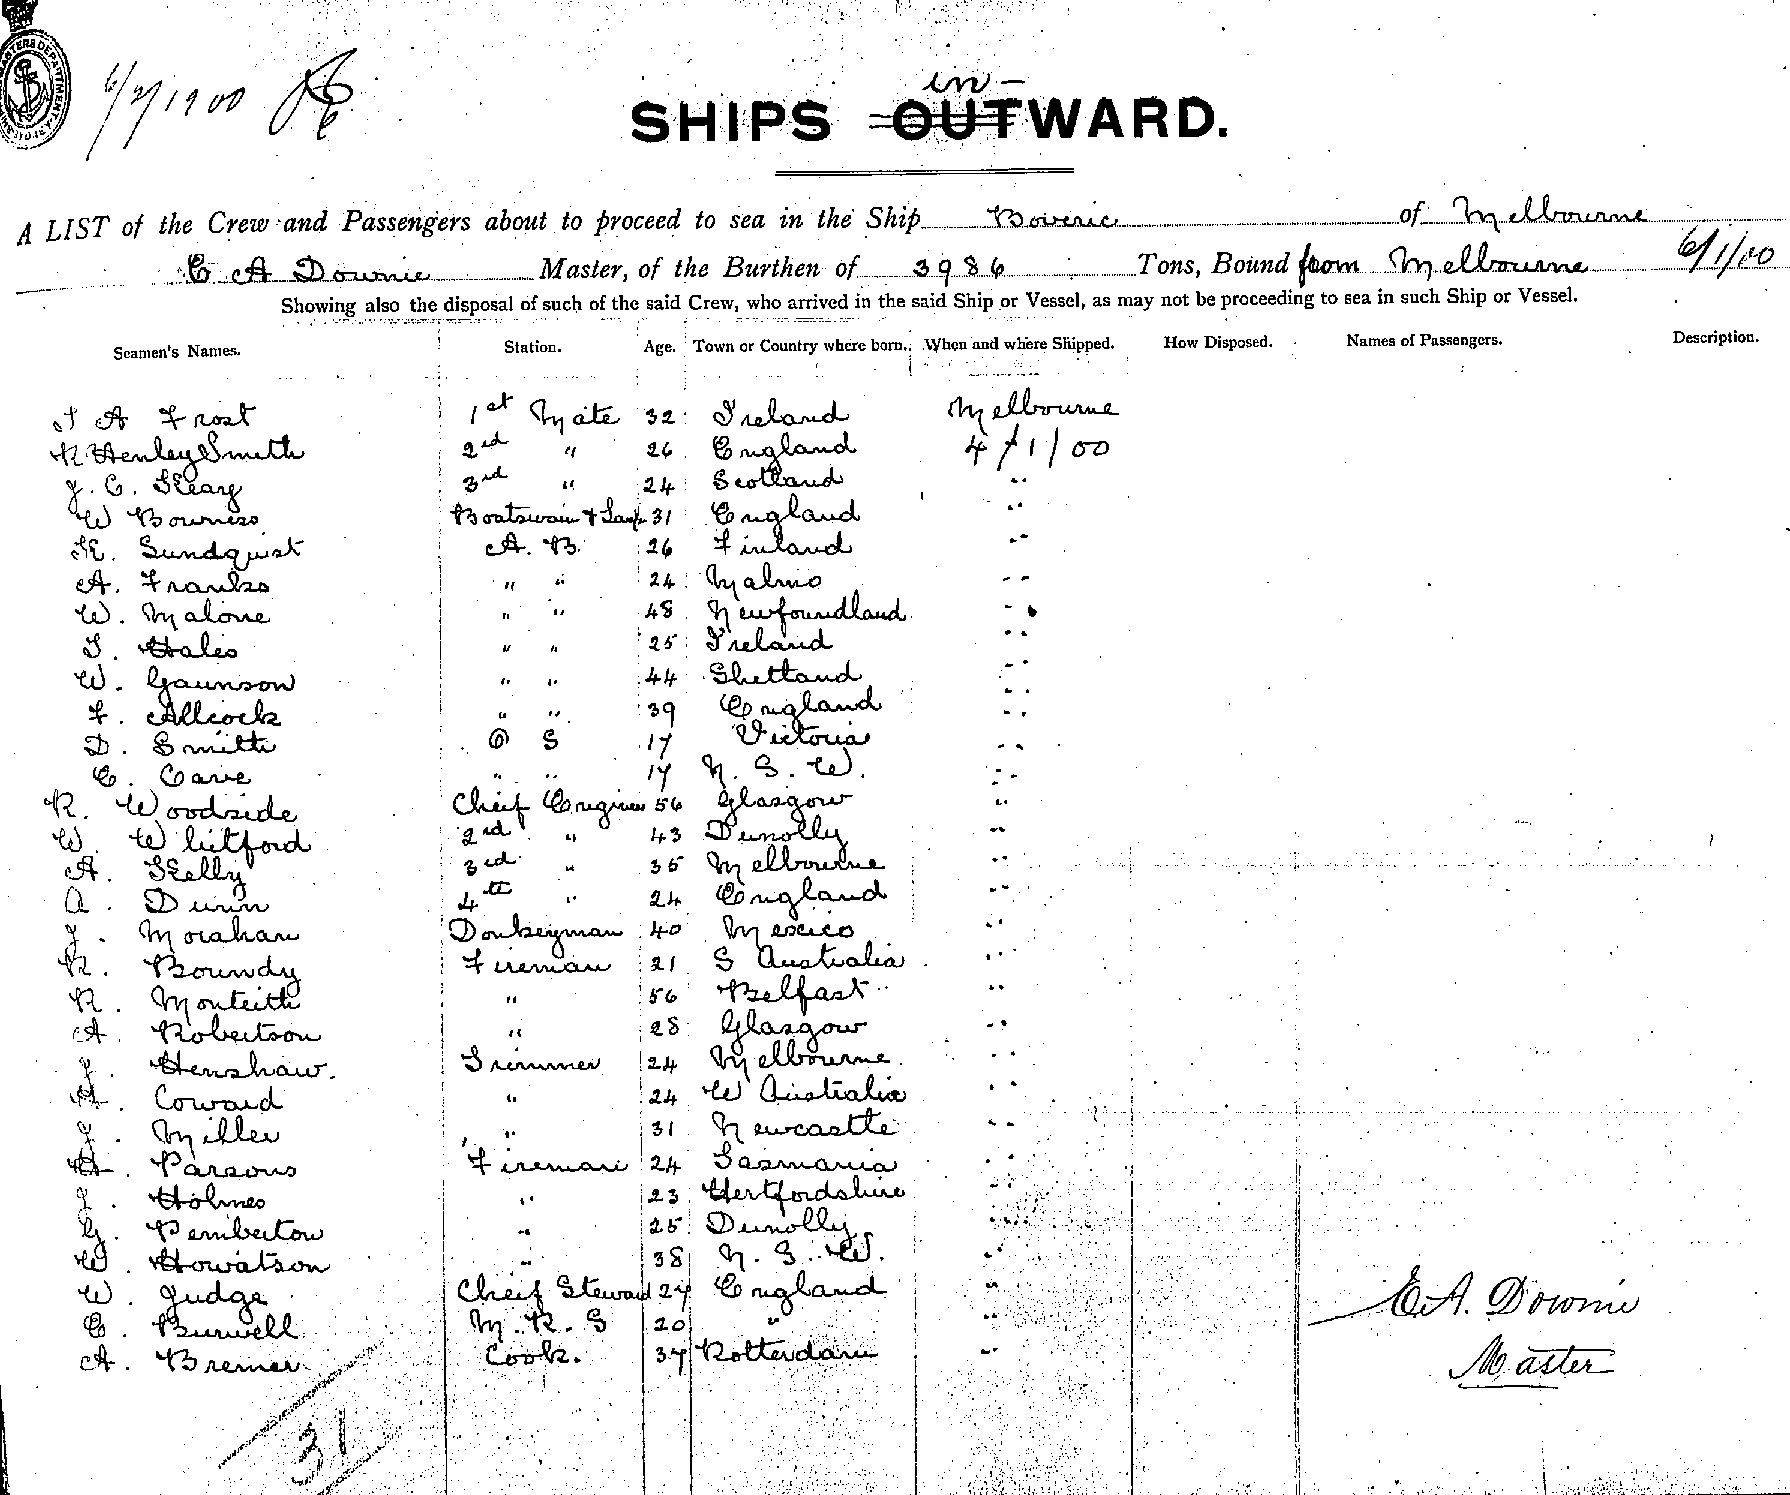 6/1/1900
in-
SHIPS OUTWARD.
A LIST of the Crew and Passengers about to proceed to sea in the Ship Boveric of Melbourne
E A Downie Master, of the Burthen of 3986 Tons, Bound from Melbourne 6/1/00
Showing also the disposal of such of the said Crew, who arrived in the said Ship or Vessel, as may not be proceeding to sea in such Ship or Vessel.
Seamen's Names. Station. Age. Town or Country where born. When and where Shipped. How Disposed. Names of Passengers. Description.
J A Frost 1st Mate 32 Ireland Melbourne
R Henley Smith 2nd " 26 England 4/1/00
J. C. Keay 3rd " 24 Scotland "
W Bowness Boatswain & Lamp 31 England "
K. Sundquist A. B. 26 Finland "
A. Franks " " 24 Malmo "
W. Malone " " 48 Newfoundland "
T. Hales " " 25 Ireland "
W. Gaunson " " 44 Shetland "
F. Allcock " " 39 England "
D. Smith O S 17 Victoria "
C. Cave " " 17 N. S. W. "
R. Woodside Chief Engineer 56 Glasgow "
W. Whitford 2nd " 43 Dunolly "
A. Kelly 3rd " 35 Melbourne "
A. Dunn 4th " 24 England "
J. Morahan Donkeyman 40 Mexico "
R. Boundy Fireman 21 S Australia "
R. Monteith " 56 Belfast "
A. Robertson " 28 Glasgow "
J. Henshaw. Trimmer 24 Melbourne. "
H. Coward " 24 W Australia "
J. Miller " 31 Newcastle "
H. Parsons Fireman 24 Tasmania "
J. Holmes " 23 Hertfordshire "
G. Pemberton " 25 Dunolly "
W. Howatson " 38 N. S. W. "
W. Judge Chief Steward 27 England "
E. Burwell M. R. S 20 " "
A. Bremer Cook. 37 Rotterdam "
E. A. Downie
Master
31